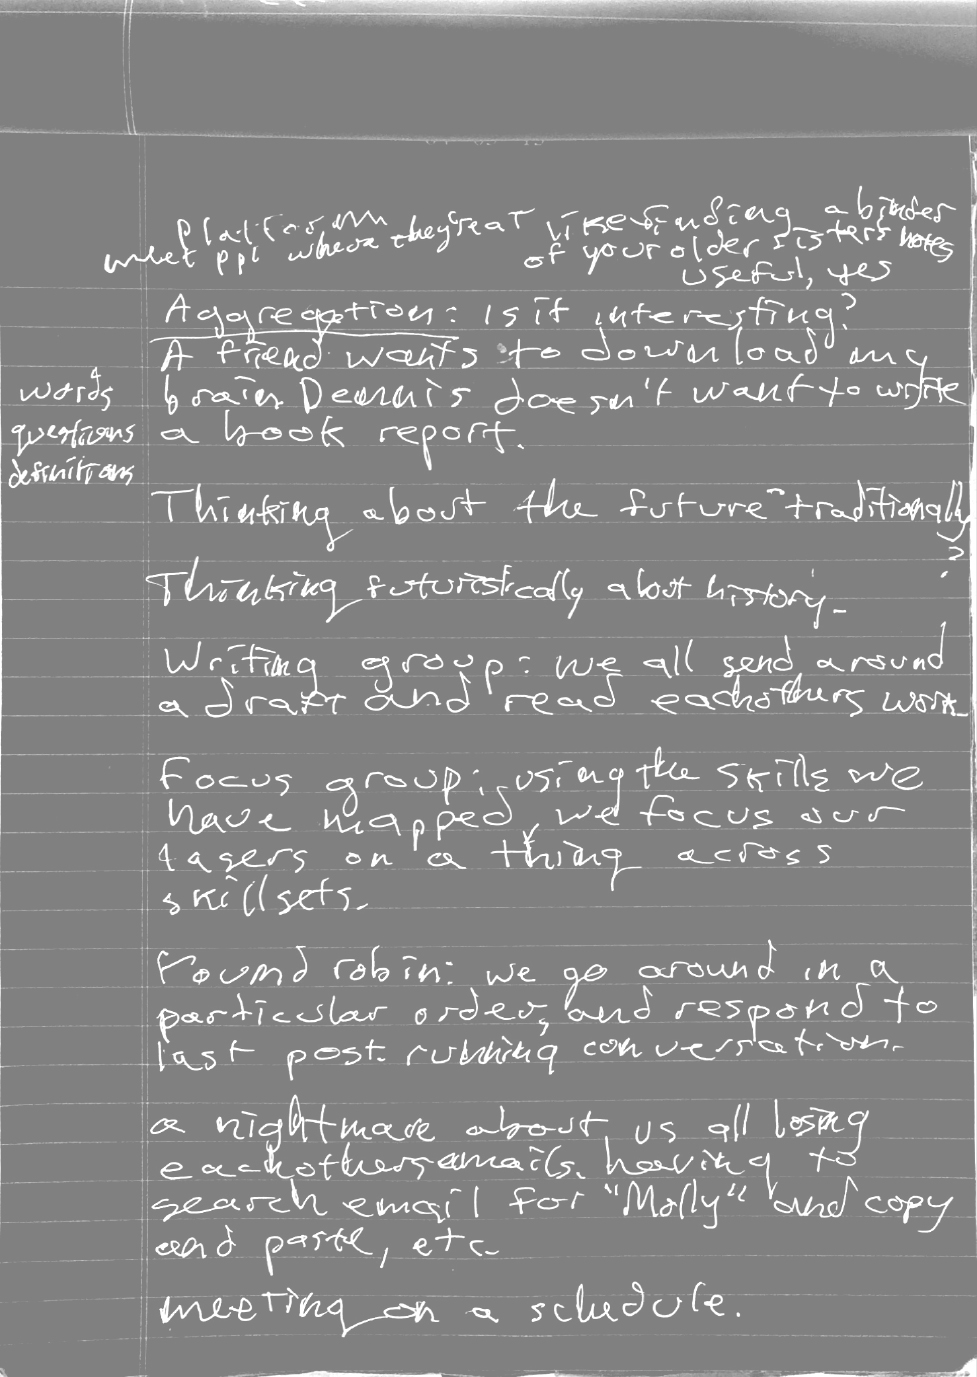 platform
meet ppl where they're at
like finding a binder
of your older sisters notes
useful, yes
Aggregation: Is it interesting?
A friend wants to download my
brain. Dennis doesn't want to write
a book report.
words
questions
definitions
Thinking about the future traditionally
?
Thinking futuristically about history.
Writing group: we all send around
a draft and read eachothers work.
Focus group: using the skills we
have mapped, we focus our
lasers on a thing across
skillsets.
round robin: we go around in a
particular order, and respond to
last post. running conversation.
a nightmare about us all losing
eachothers emails. having to
search email for "Molly" and copy
and paste, etc.
meeting on a schedule.